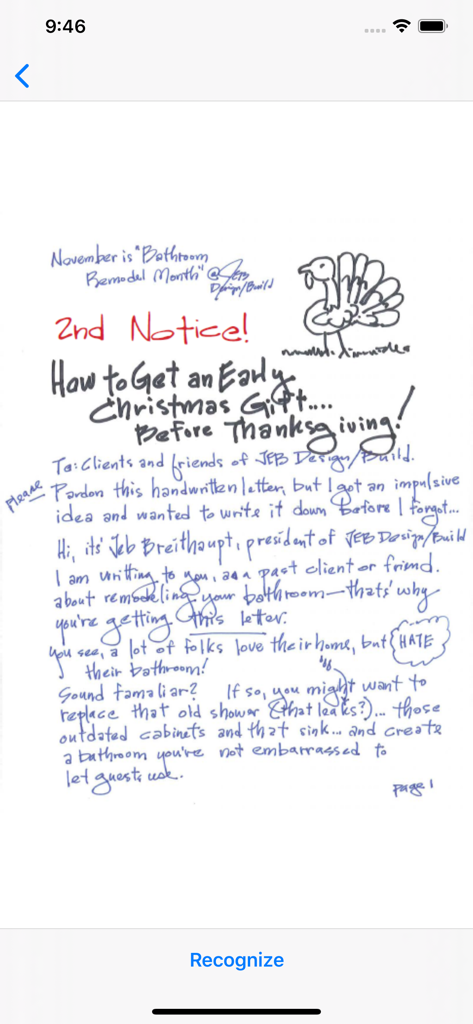 9:46
November is "Bathroom
Remodel Month" @ JEB
Design/Build
2nd Notice!
How to Get an Early
Christmas Gift....
Before Thanksgiving!
To: Clients and friends of JEB Design/Build.
Please Pardon this handwritten letter, but I got an impulsive
idea and wanted to write it down before I forgot...
Hi, its' Jeb Breithaupt, president of JEB Design/Build
I am writing to you, as a past client or friend.
about remodeling your bathroom—thats' why
you're getting this letter.
You see, a lot of folks love their home, but HATE
their bathroom!
Sound famaliar? If so, you might want to
replace that old shower (that leaks?)... those
outdated cabinets and that sink... and create
a bathroom you're not embarrassed to
let guests use.
page 1
Recognize